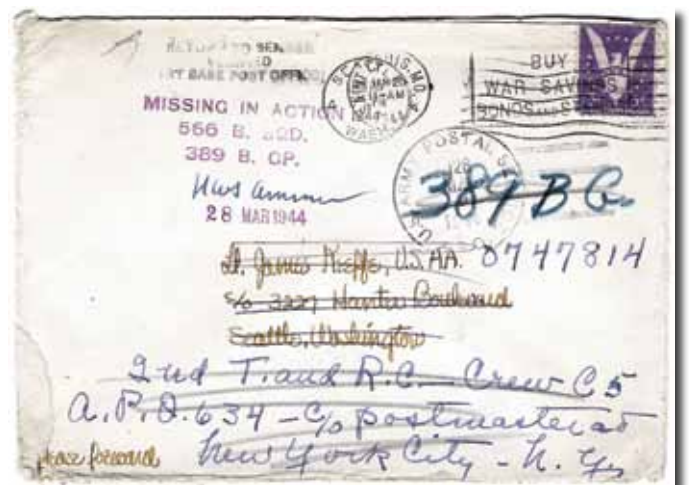 RETURN TO SENDER
BASE POST OFFICE
MISSING IN ACTION
566 B. SQD.
389 B. GP.
28 MAR 1944
ST. LOUIS, MO.
WASH.
BUY
WAR SAVINGS
BONDS AND STAMPS
U.S. ARMY POSTAL
389 B G.
Lt. James Keeffe, U.S. AA. 0747814
c/o 3227 Hunter Boulevard
Seattle, Washington
2nd T. and R.C. - Crew C 5
A.P.O. 634 - c/o postmaster at
New York City - N. Y.
please forward